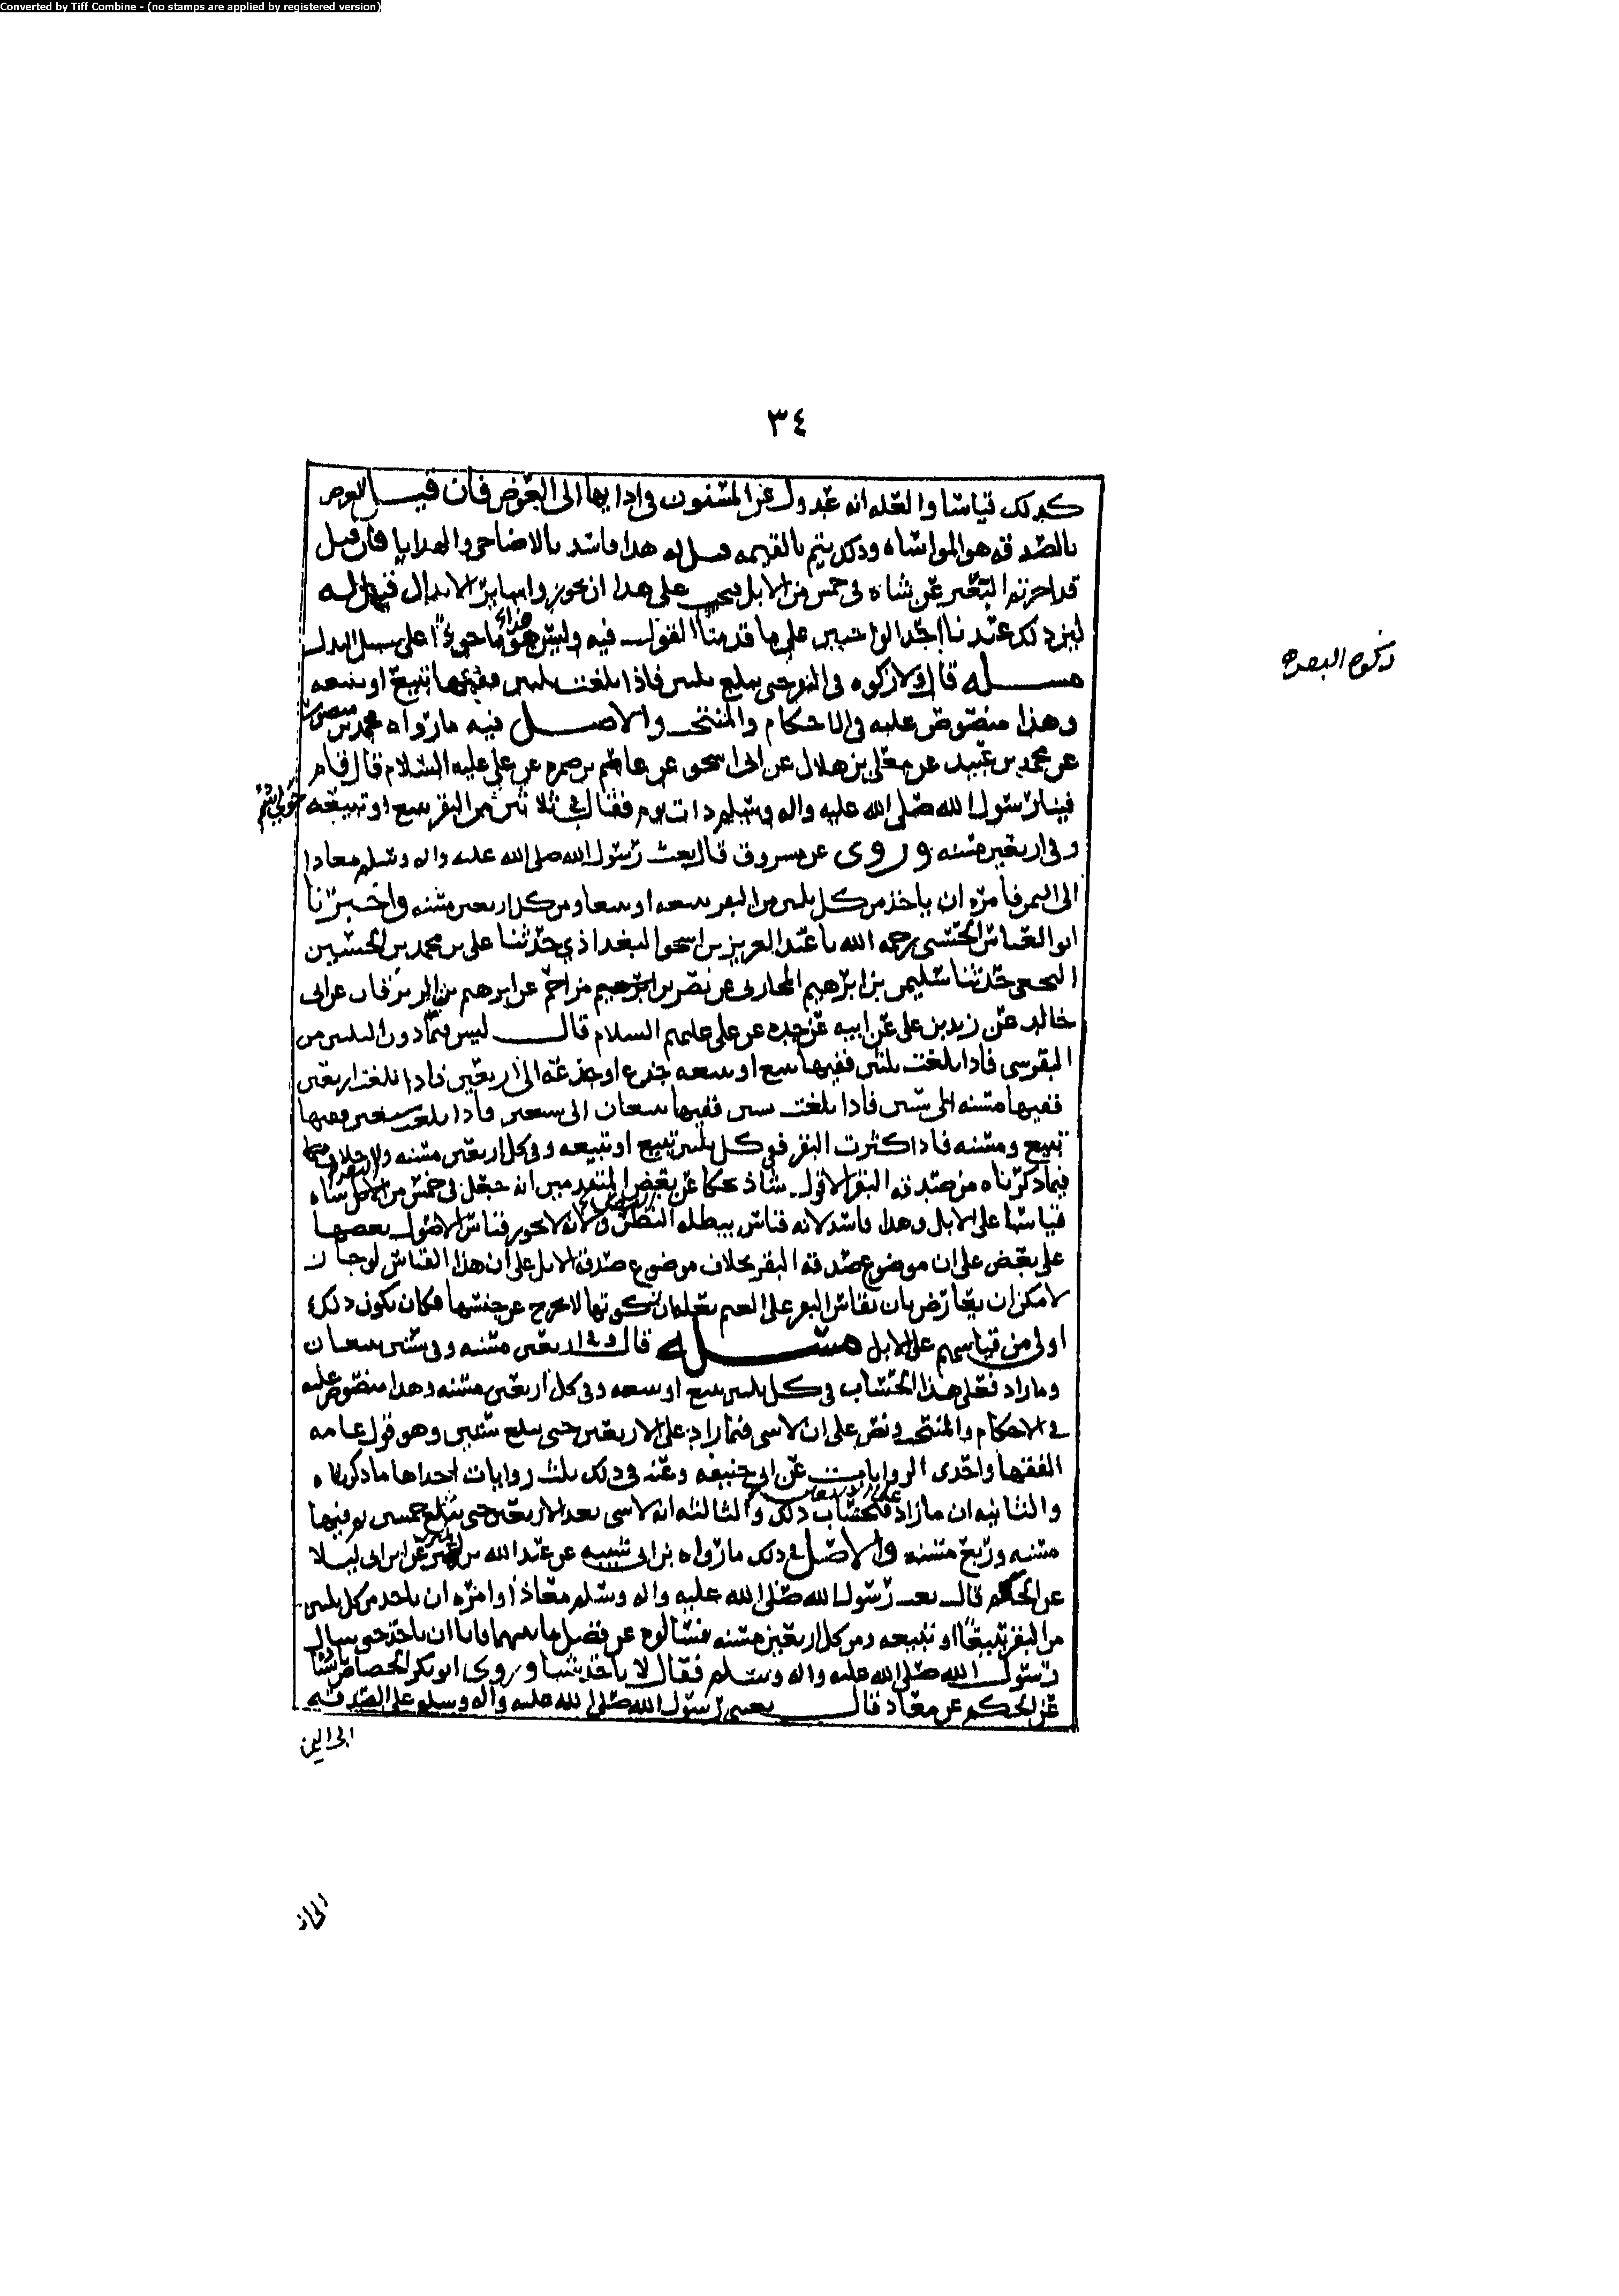 Converted by Tiff Combine - (no stamps are applied by registered version)
٣٤
كذلك قياسا والعله انه عدول عن المسنون في ادايها الى العوض فان قيل الغرض
بالصدقه هو المواساه وذلك يتم بالقيمه قيل له هذا فاسد بالاضاحي والهدايا فان قيل
قد اجزتم البعير عن شاه في خمس من الابل فيجب على هذا ان تجوزوا ساير الابدال قيل له
ليس ذلك عندنا احد الواجبين على ما قدمنا القول فيه وليس هو ماخوذا على سبيل البدل
زكوة البقر
مسله قال ولا زكوه في البقر حتى تبلغ ثلثين فاذا بلغت ثلثين ففيها تبيع او تبيعه
وهذا منصوص عليه في الاحكام والمنتخب والاصل فيه ما رواه محمد بن منصور
عن محمد بن عبيد عن معلى بن هلال عن ابي اسحق عن عاصم بن ضمره عن علي عليه السلام قال قام
فينا رسول الله صلى الله عليه واله وسلم ذات يوم فقال في ثلاثين من البقر تبيع او تبيعه
وفي اربعين مسنه وروى عن مسروق قال بعث رسول الله صلى الله عليه واله وسلم معاذا
الى اليمن فامره ان ياخذ من كل ثلثين من البقر تبيعه او تبيعا ومن كل اربعين مسنه واخبرنا
ابو العباس الحسني رحمه الله نا عبد العزيز بن اسحق البغداذي حدثنا علي بن محمد بن الحسين
النخعي حدثنا سليمن بن ابرهيم المحاربي عن نصر بن مزاحم عن ابرهيم بن الزبرقان عن ابي
خالد عن زيد بن علي عن ابيه عن جده عن علي عليهم السلام قال ليس فيما دون الثلثين من
البقر شي فاذا بلغت ثلثين ففيها تبيع او تبيعه جذع او جذعه الى اربعين فاذا بلغت اربعين
ففيها مسنه الى ستين فاذا بلغت ستين ففيها تبيعان الى سبعين فاذا بلغت سبعين ففيها
تبيع ومسنه فاذا كثرت البقر ففي كل ثلثين تبيع او تبيعه وفي كل اربعين مسنه ولا خلاف
فيما ذكرناه من صدقه البقر الا قول شاذ يحكا عن بعض المتقدمين انه جعل في خمس من البقر شاه
قياسا على الابل وهذا فاسد لانه قياس يبطله النص ولانه لا يجوز قياس الاصول بعضها
على بعض على ان موضوع صدقه البقر بخلاف موضوع صدقه الابل على ان هذا القياس لو جاز
لامكن ان يعارض بان يقاس البقر على الغنم بعله ان زكوتها لا تخرج عن جنسها فكان يكون ذلك
اولى من قياسهم على الابل مسله قال وفي اربعين مسنه وفي ستين تبيعان
وما زاد فعلى هذا الحساب في كل ثلثين تبيع او تبيعه وفي كل اربعين مسنه وهذا منصوص عليه
في الاحكام والمنتخب ونص على ان لا شي فيما زاد على الاربعين حتى تبلغ ستين وهو قول عامه
الفقها واحدى الروايات عن ابي حنيفه وعنه في ذلك ثلث روايات احداها ما ذكرناه
والثانيه ان ما زاد فبحساب ذلك والثالثه انه لا شي بعد الاربعين حتى تبلغ خمسين ففيها
مسنه وربع مسنه والاصل في ذلك ما رواه بن ابي شيبه عن عبد الله بن عن ابن ابي ليلا
عن الحكم قال بعث رسول الله صلى الله عليه واله وسلم معاذا وامره ان ياخذ من كل ثلثين
من البقر تبيعا او تبيعه ومن كل اربعين مسنه فسالوه عن فضل ما بينهما فابا ان ياخذ حتى يسال
رسول الله صلى الله عليه واله وسلم فقال لا ياخذ شيا وروى ابو بكر الجصاص
عن الحكم عن معاذ قال بعثني رسول الله صلى الله عليه واله وسلم على الصدقه
الى اليمن